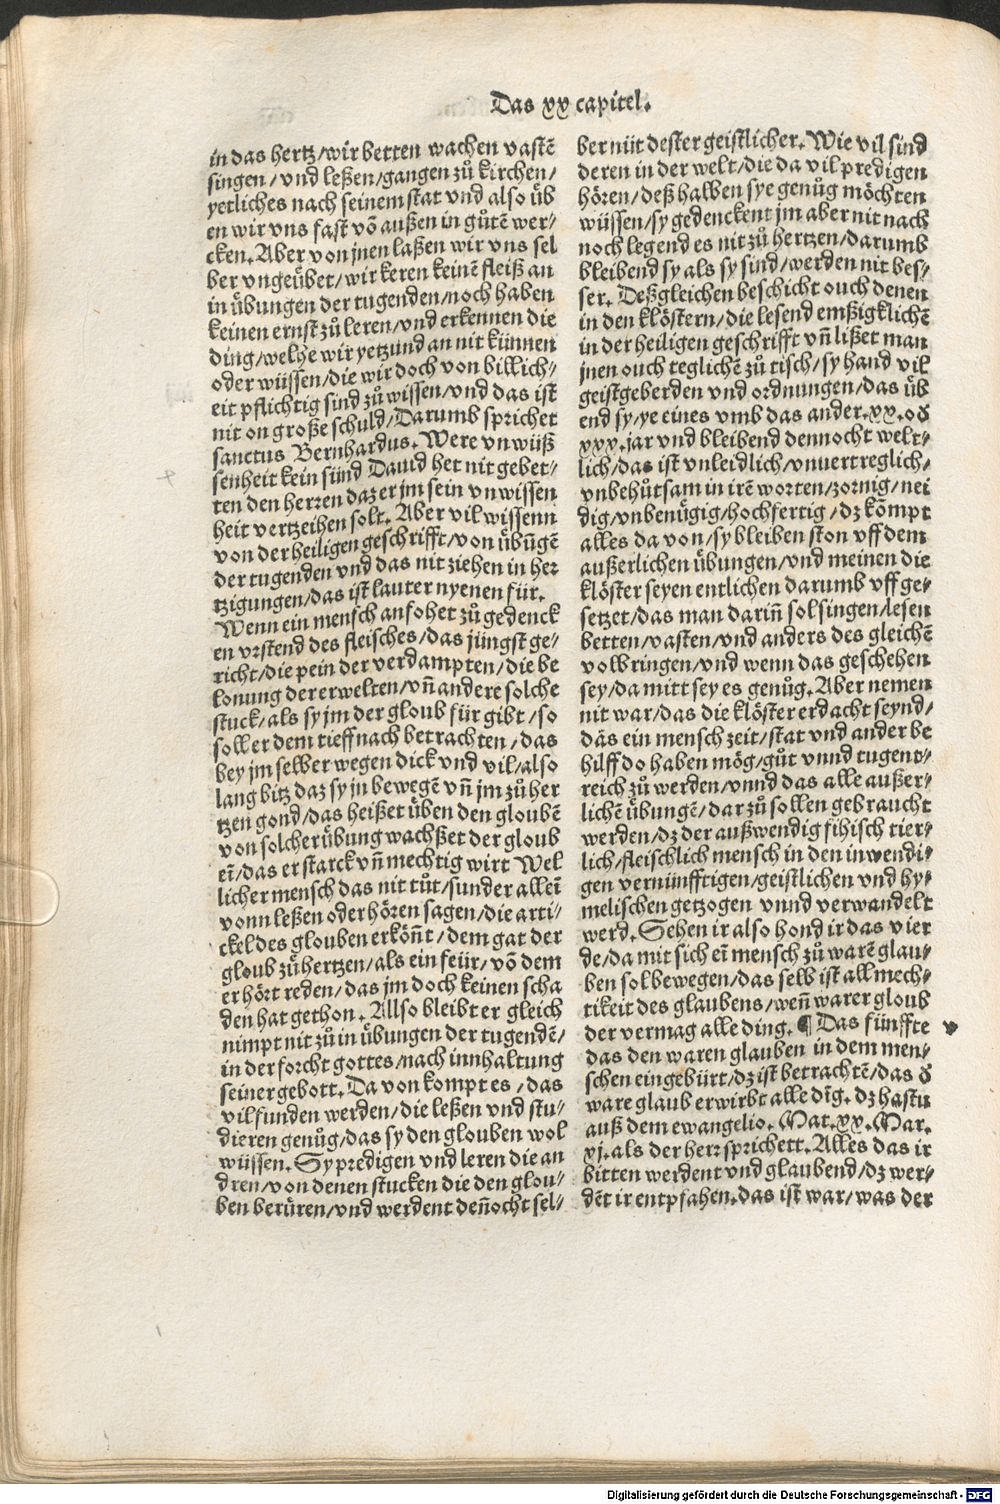 Das xx capitel.
in das hertz/wir betten wachen vastē
singen/vnd leßen/gangen zů kirchen/
yetliches nach seinem stat vnd also üb
en wir vns fast vō außen in gůtē wer-
cken. Aber von jnen laßen wir vns sel
ber vngeübet/wir keren keinē fleiß an
in übungen der tugenden/noch haben
keinen ernst zů leren/vnd erkennen die
ding/welche wir yetzund an nit künnen
oder wüssen/die wir doch von billich-
eit pflichtig sind zů wissen/vnd das ist
nit on große schuld/Darumb sprichet
sanctus Bernhardus. Were vnwüß
senheit kein sünd Dauid het nit gebet-
ten den herren daz er jm sein vnwissen
heit vertzeihen solt. Aber vil wissenn
von der heiligen geschrifft/von übūgē
der tugenden vnd das nit ziehen in her
tzigungen/das ist lauter nyenen für.
Wenn ein mensch anfohet zů gedenck
en vrstend des fleisches/das jüngst ge-
richt/die pein der verdampten/die be
lonung der erwelten/vn̄ andere solche
stuck/als sy jm der gloub für gibt/so
soll er dem tieff nach betrachten/das
bey jm selber wegen dick vnd vil/also
lang bitz daz sy jn bewegē vn̄ jm zů her
tzen gond/das heißet üben den gloubē
von solcher übung wachßet der gloub
en̄/das er starck vn̄ mechtig wirt Wel
licher mensch das nit tůt/sunder allein̄
vonn leßen oder hören sagen/die arti-
ckel des glouben erkōnt/dem gat der
gloub zů hertzen/als ein feür/vō dem
er hört reden/das jm doch keinen scha
den hat gethon. Allso bleibt er gleich
nimpt nit zů in übungen der tugendē/
in der forcht gottes/nach innhaltung
seiner gebott. Da von kompt es/das
vil funden werden/die leßen vnd stu-
dieren genůg/das sy den glouben wol
wüssen. Sy predigen vnd leren die an
dren/von denen stucken die den glou-
ben berüren/vnd werdent den̄ocht sel-
ber nüt dester geistlicher. Wie vil sind
deren in der welt/die da vil predigen
hören/deß halben sye genůg möchten
wüssen/sy gedenckent jm aber nit nach
noch legend es nit zů hertzen/darumb
bleibend sy als sy sind/werden nit bes-
ser. Deßgleichen beschicht ouch denen
in den klöstern/die lesend emßigklichē
in der heiligen geschrifft vn̄ lißet man
jnen ouch teglichē zů tisch/sy hand vil
geistgeberden vnd ordnungen/das üb
end sy/ye eines vmb das ander. xx. od̄
xxx. jar vnd bleibend dennocht welt-
lich/das ist vnleidlich/vnuertreglich/
vnbehůtsam in irē worten/zornig/nei
dig/vnbenügig/hochfertig/dz kōmpt
alles da von/sy bleiben ston vff dem
außerlichen übungen/vnd meinen die
klöster seyen entlichen darumb vff ge-
setzet/das man darin̄ sol singen/lesen
betten/vasten/vnd anders des gleichē
volbringen/vnd wenn das geschehen
sey/da mitt sey es genůg. Aber nemen
nit war/das die klöster erdacht seynd/
däs ein mensch zeit/stat vnd ander be
hilff do haben mög/gůt vnnd tugent-
reich zů werden/vnnd das alle außer-
lichē übungē/dar zů sollen gebraucht
werden/dz der außwendig fihisch tier-
lich/fleischlich mensch in den inwendi-
gen vernünfftigen/geistlichen vnd hy-
melischen getzogen vnnd verwandelt
werd. Sehen ir also hond ir das vier
de/da mit sich ein̄ mensch zů warē glau-
ben sol bewegen/das selb ist allmech-
tikeit des glaubens/wen̄ warer gloub
der vermag alle ding. ¶ Das fünffte
das den waren glauben in dem men-
schen eingebürt/dz ist betrachtē/das d̄
ware glaub erwirbt alle dīg. dz hastu
auß dem ewangelio. Mat. xx. Mar.
xj. als der herr sprichett. Alles das ir
bitten werdent vnd glaubend/dz wer-
dēt ir entpfahen. das ist war/was der
Digitalisierung gefördert durch die Deutsche Forschungsgemeinschaft - DFG